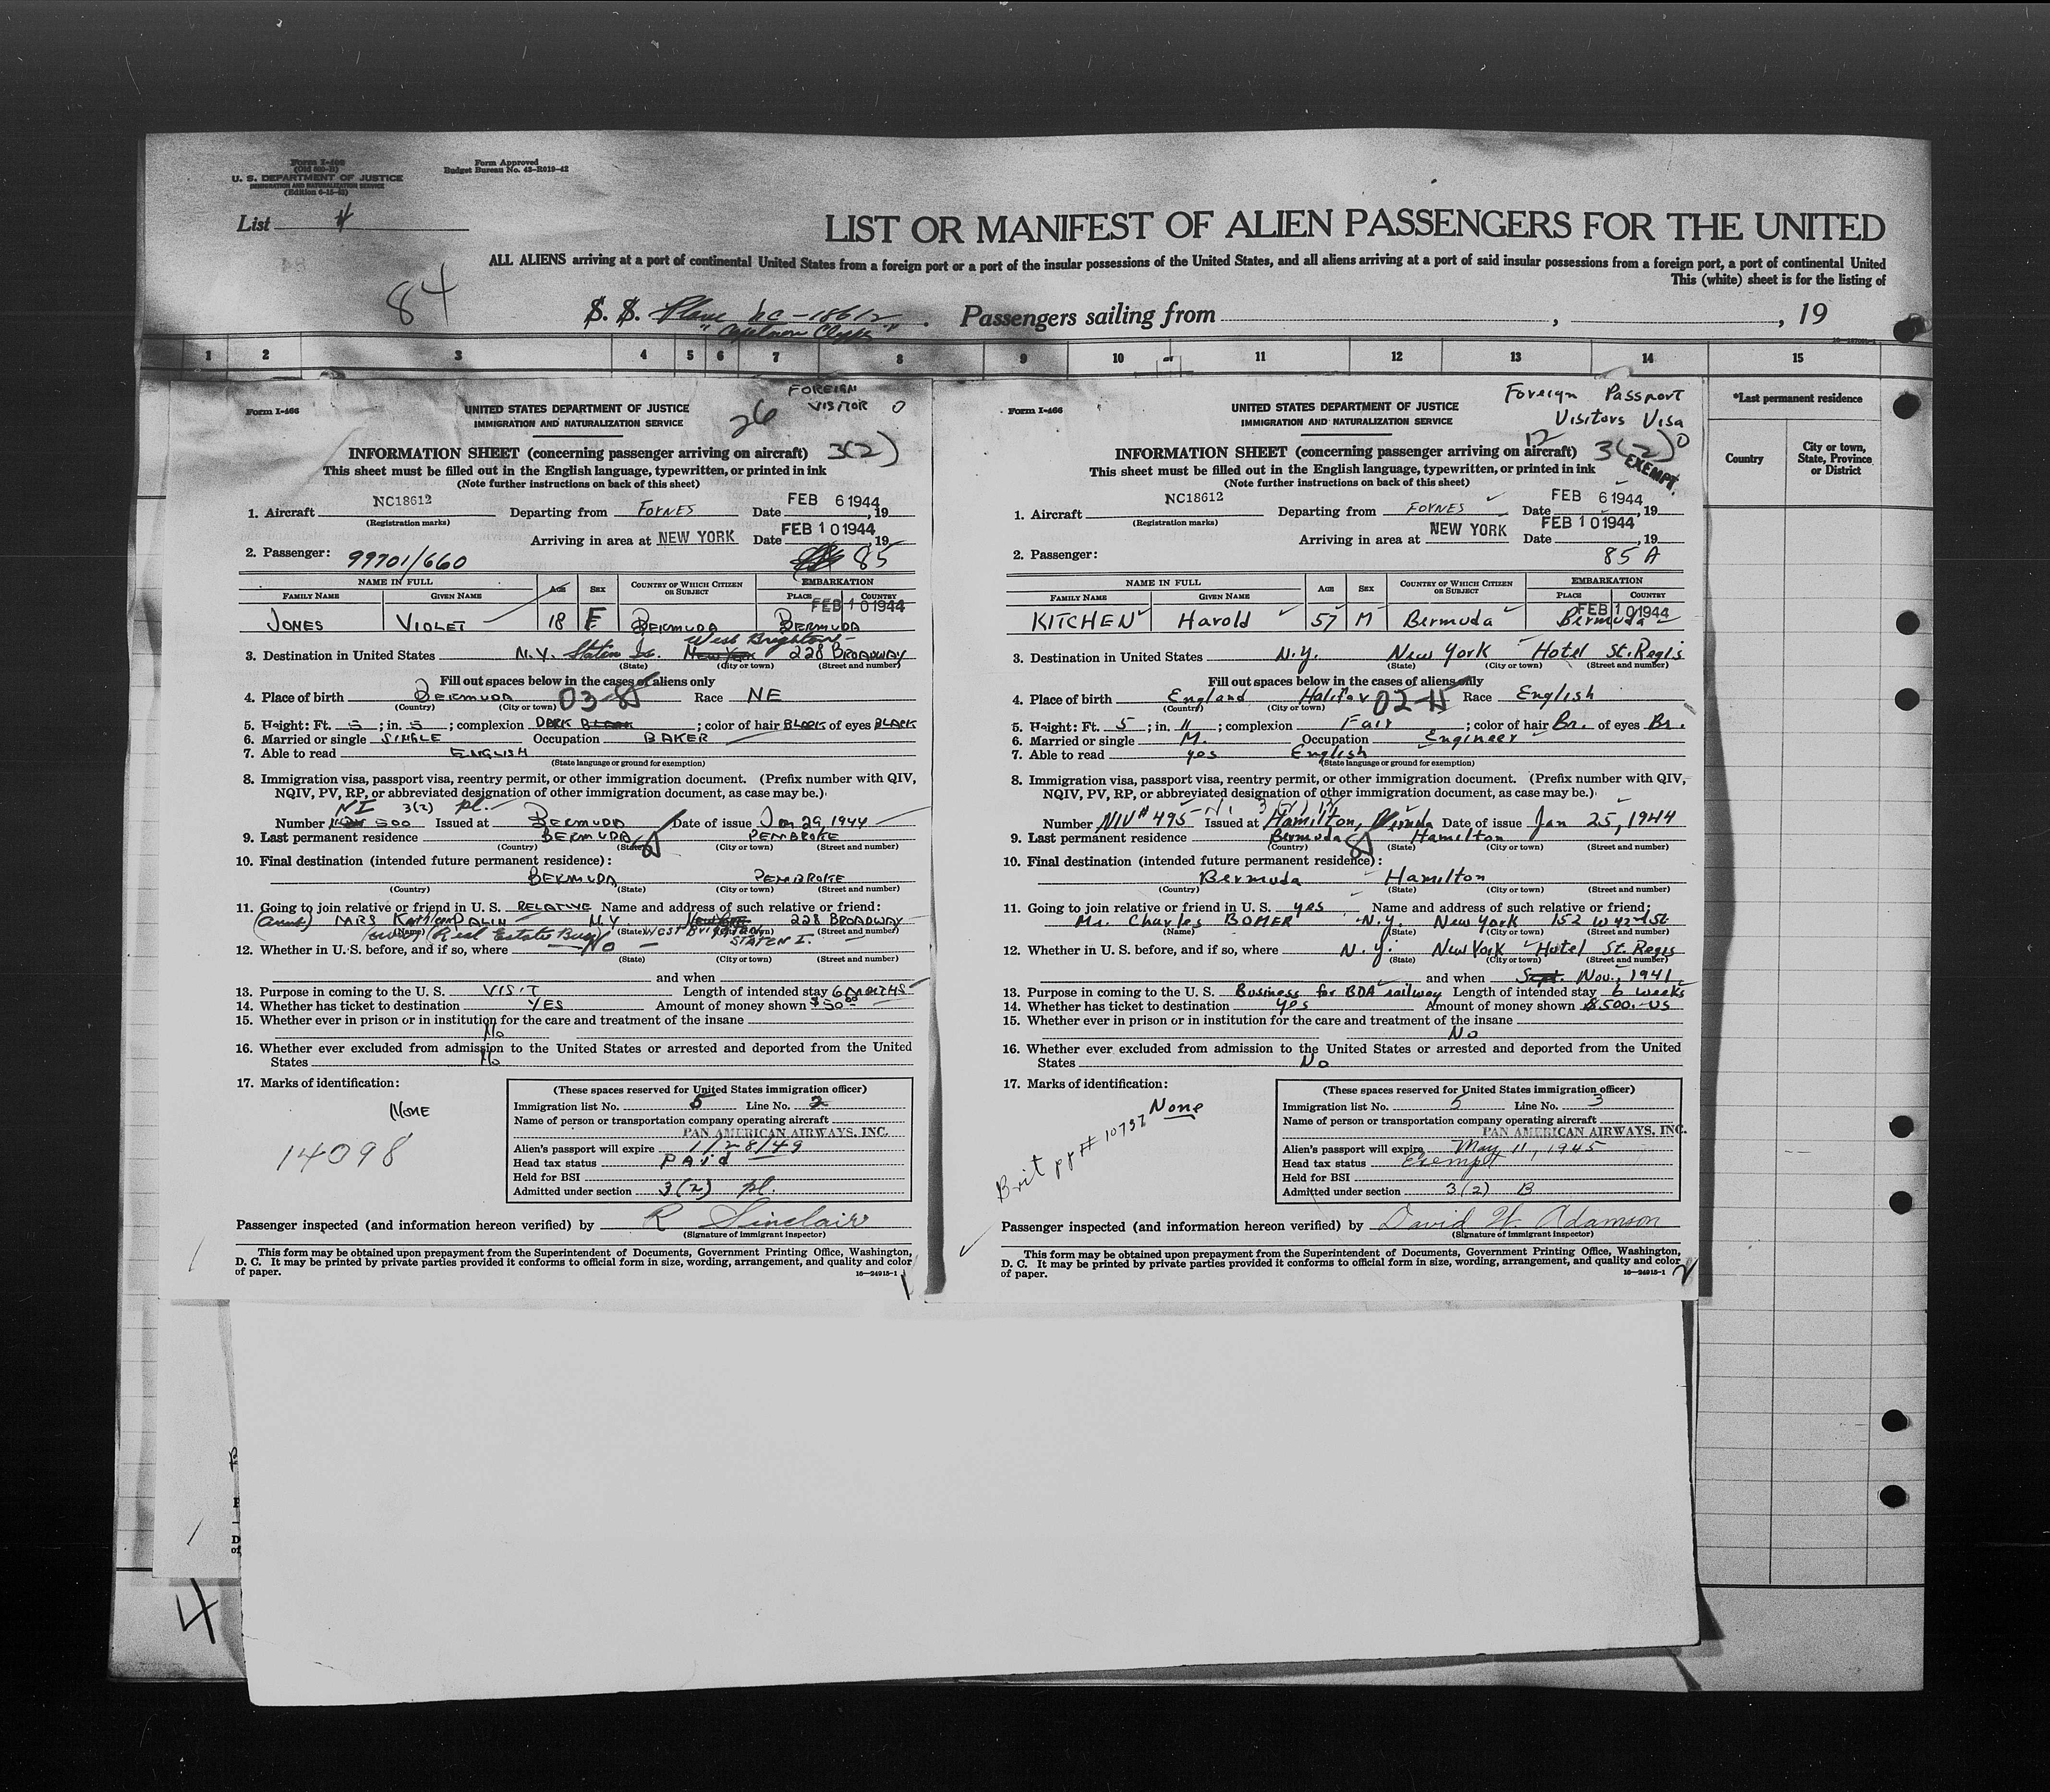 Form I-466
(Old 500-B)
U. S. DEPARTMENT OF JUSTICE
IMMIGRATION AND NATURALIZATION SERVICE
Form Approved
Budget Bureau No. 43-R019-42
List 4
LIST OR MANIFEST OF ALIEN PASSENGERS FOR THE UNITED
ALL ALIENS arriving at a port of continental United States from a foreign port or a port of the insular possessions of the United States, and all aliens arriving at a port of said insular possessions from a foreign port, a port of continental United
This (white) sheet is for the listing of
84
S. S. Plane NC-18612. Passengers sailing from , , 19
1 2 3 4 5 6 7 8 9 10 11 12 13 14 15
*Last permanent residence
Country
City or town, State, Province or District
FOREIGN
VISITOR 0
26
Form I-466
UNITED STATES DEPARTMENT OF JUSTICE
IMMIGRATION AND NATURALIZATION SERVICE
INFORMATION SHEET (concerning passenger arriving on aircraft) 3(2)
This sheet must be filled out in the English language, typewritten, or printed in ink
(Note further instructions on back of this sheet)
1. Aircraft NC18612 Departing from FOYNES Date FEB 6 1944, 19
(Registration marks)
Arriving in area at NEW YORK Date FEB 10 1944, 19
2. Passenger: 99701/660 85
NAME IN FULL AGE SEX COUNTRY OF WHICH CITIZEN OR SUBJECT EMBARKATION
FAMILY NAME GIVEN NAME PLACE COUNTRY
FEB 10 1944
JONES VIOLET 18 F. BERMUDA BERMUDA
West Brighton
3. Destination in United States N.Y. Staten Is. New York 228 BROADWAY
(State) (City or town) (Street and number)
Fill out spaces below in the cases of aliens only
4. Place of birth BERMUDA 03- Race NE
(Country) (City or town)
5. Height: Ft. 5; in. 5; complexion DARK BLACK; color of hair BLACK of eyes BLACK
6. Married or single SINGLE Occupation BAKER
7. Able to read ENGLISH
(State language or ground for exemption)
8. Immigration visa, passport visa, reentry permit, or other immigration document. (Prefix number with QIV,
NQIV, PV, RP, or abbreviated designation of other immigration document, as case may be.)
NI 3(2) pl.
Number 500 Issued at BERMUDA Date of issue Jan 29, 1944
9. Last permanent residence BERMUDA PEMBROKE
(Country) (State) (City or town) (Street and number)
10. Final destination (intended future permanent residence):
BERMUDA PEMBROKE
(Country) (State) (City or town) (Street and number)
11. Going to join relative or friend in U. S. RELATIVE Name and address of such relative or friend:
(Aunt) MRS Kathleen DALIN N.Y New York 228 BROADWAY
(Name) (Real Estate Bus) (State) WEST BRIGHTON (City or town) (Street and number)
STATEN I.
12. Whether in U. S. before, and if so, where NO
(State) (City or town) (Street and number)
and when
13. Purpose in coming to the U. S. VISIT Length of intended stay 6 MONTHS
14. Whether has ticket to destination YES Amount of money shown $50.00
15. Whether ever in prison or in institution for the care and treatment of the insane
No
16. Whether ever excluded from admission to the United States or arrested and deported from the United
States No
17. Marks of identification:
NONE
14098
(These spaces reserved for United States immigration officer)
Immigration list No. 5 Line No. 2
Name of person or transportation company operating aircraft
PAN AMERICAN AIRWAYS, INC.
Alien's passport will expire 1/28/49
Head tax status Paid
Held for BSI
Admitted under section 3(2) pl.
Passenger inspected (and information hereon verified) by R Sinclair
(Signature of immigrant inspector)
This form may be obtained upon prepayment from the Superintendent of Documents, Government Printing Office, Washington,
D. C. It may be printed by private parties provided it conforms to official form in size, wording, arrangement, and quality and color
of paper.
16—24915-1
Foreign Passport
Visitors Visa
Form I-466
UNITED STATES DEPARTMENT OF JUSTICE
IMMIGRATION AND NATURALIZATION SERVICE
12
INFORMATION SHEET (concerning passenger arriving on aircraft) 3(2) 0
EXEMPT.
This sheet must be filled out in the English language, typewritten, or printed in ink
(Note further instructions on back of this sheet)
1. Aircraft NC18612 Departing from FOYNES Date FEB 6 1944, 19
(Registration marks)
Arriving in area at NEW YORK Date FEB 10 1944, 19
2. Passenger: 85 A
NAME IN FULL AGE SEX COUNTRY OF WHICH CITIZEN OR SUBJECT EMBARKATION
FAMILY NAME GIVEN NAME PLACE COUNTRY
FEB 10 1944
KITCHEN Harold 57 M Bermuda Bermuda
3. Destination in United States N.Y. New York Hotel St. Regis
(State) (City or town) (Street and number)
Fill out spaces below in the cases of aliens only
4. Place of birth England Halifax 02- Race English
(Country) (City or town)
5. Height: Ft. 5; in. 11; complexion Fair; color of hair Br. of eyes Br.
6. Married or single M. Occupation Engineer
7. Able to read yes English
(State language or ground for exemption)
8. Immigration visa, passport visa, reentry permit, or other immigration document. (Prefix number with QIV,
NQIV, PV, RP, or abbreviated designation of other immigration document, as case may be.)
Number NIV # 495 Issued at Hamilton, Bermuda Date of issue Jan 25, 1944
9. Last permanent residence Bermuda Hamilton
(Country) (State) (City or town) (Street and number)
10. Final destination (intended future permanent residence):
Bermuda Hamilton
(Country) (State) (City or town) (Street and number)
11. Going to join relative or friend in U. S. yes Name and address of such relative or friend:
Mr. Charles BOMER N.Y. New York 152 W 42nd St
(Name) (State) (City or town) (Street and number)
12. Whether in U. S. before, and if so, where N.Y. New York Hotel St. Regis
(State) (City or town) (Street and number)
and when Sept. Nov. 1941
13. Purpose in coming to the U. S. Business for BDA railway Length of intended stay 6 weeks
14. Whether has ticket to destination yes Amount of money shown $500.-US
15. Whether ever in prison or in institution for the care and treatment of the insane
No
16. Whether ever excluded from admission to the United States or arrested and deported from the United
States No
17. Marks of identification:
None
Brit pp# 10797
(These spaces reserved for United States immigration officer)
Immigration list No. 5 Line No. 3
Name of person or transportation company operating aircraft
PAN AMERICAN AIRWAYS, INC.
Alien's passport will expire May 11, 1945
Head tax status Exempt
Held for BSI
Admitted under section 3(2) B
Passenger inspected (and information hereon verified) by David W. Adamson
(Signature of immigrant inspector)
This form may be obtained upon prepayment from the Superintendent of Documents, Government Printing Office, Washington,
D. C. It may be printed by private parties provided it conforms to official form in size, wording, arrangement, and quality and color
of paper.
16—24915-1
4